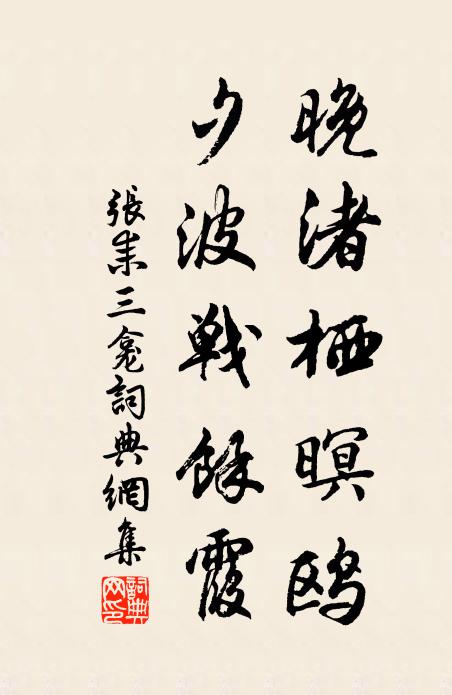 晚渚栖暝鸥
夕波戰餘霞
張耒三龛詞典網集
詞典网印